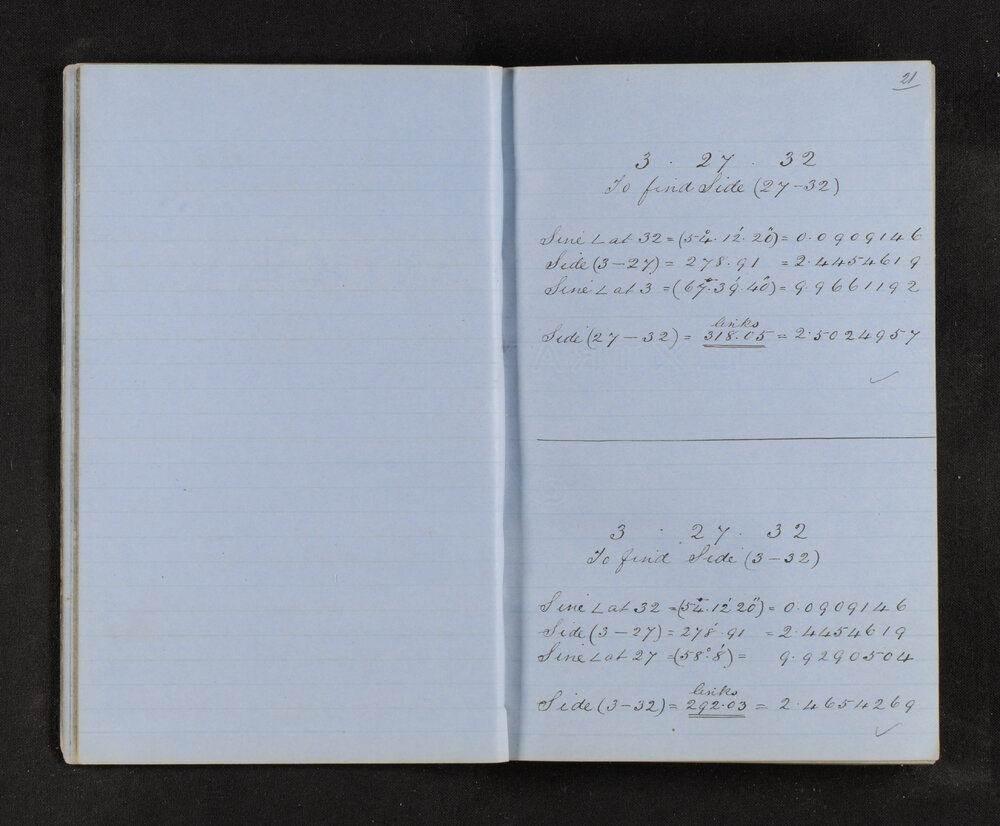 21
3 . 27 . 32
To find Side (27-32)
Sine ∠ at 32 = (54°. 12'. 20") = 0.0909146
Side (3-27) = 278.91 = 2.4454619
Sine ∠ at 3 = (67°.39'.40") = 9.9661192
links
Side (27-32) = 318.05 = 2.5024957
3 . 27 . 32
To find Side (3-32)
Sine ∠ at 32 = (54°.12' 20") = 0.0909146
Side (3-27) = 278.91 = 2.4454619
Sine ∠ at 27 = (58°.8') = 9.9290504
links
Side (3-32) = 292.03 = 2.4654269